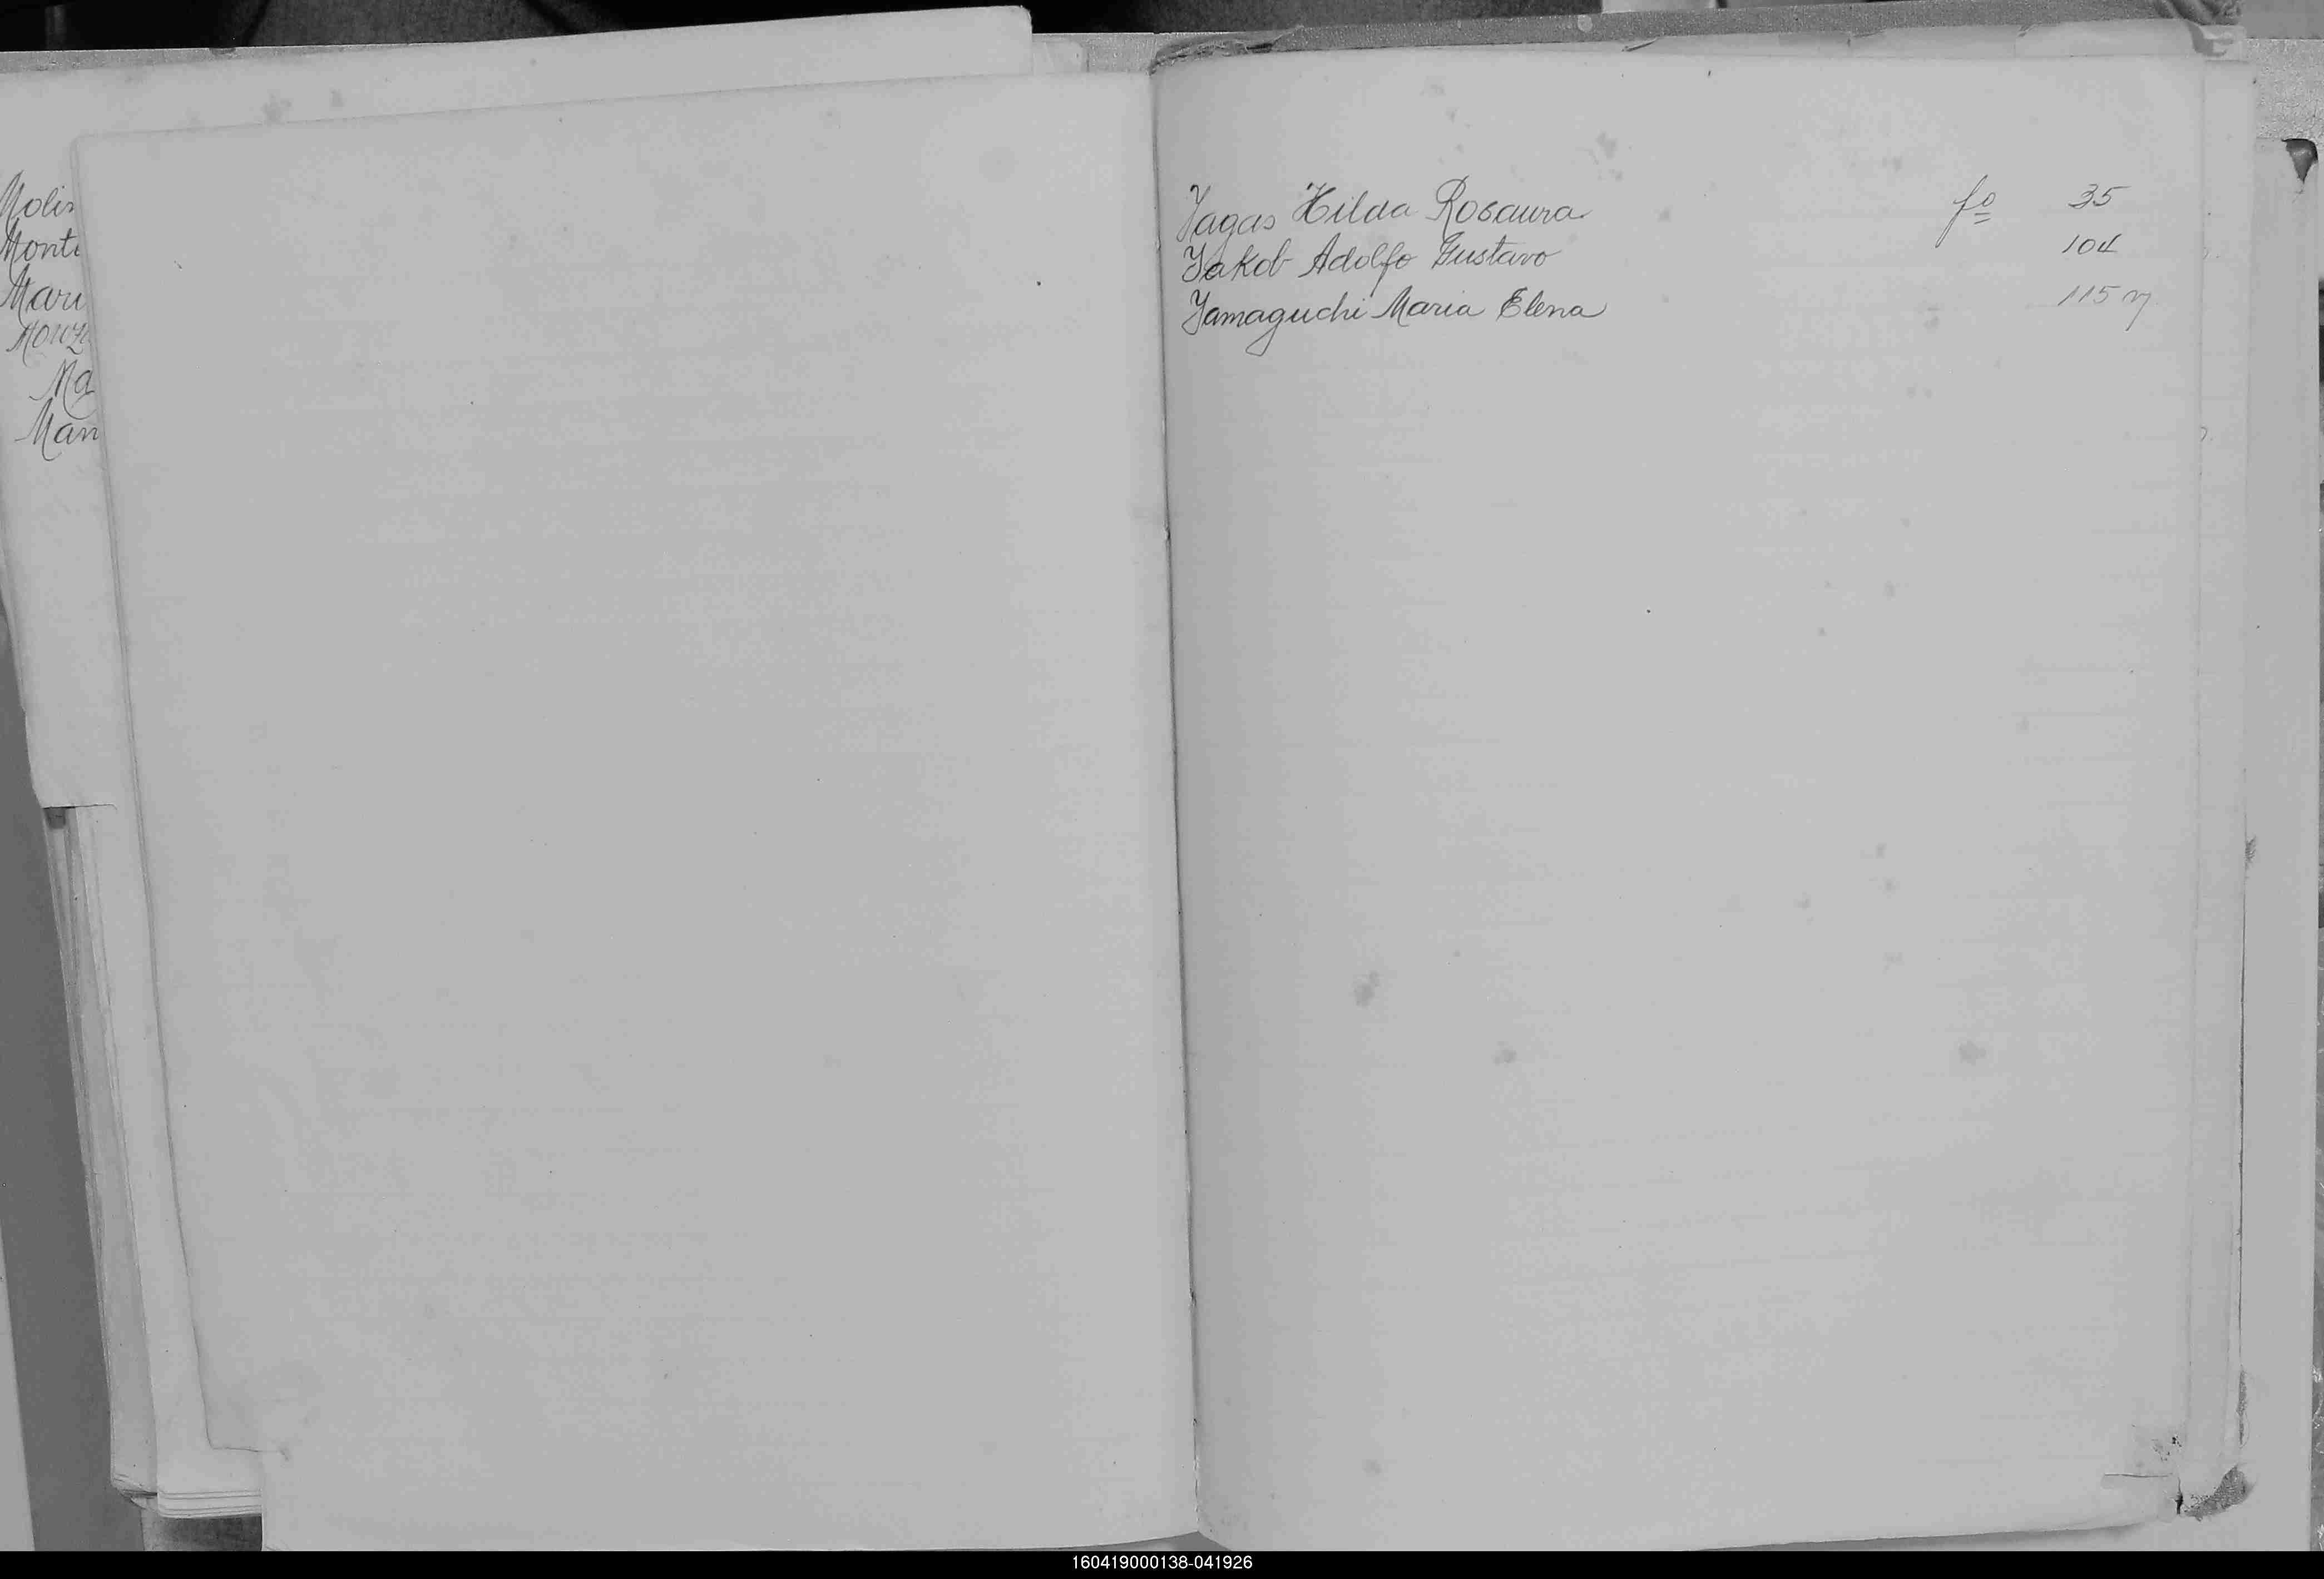 Molin
Monte
Mari
Monz
Ma
Man
Yagas Hilda Rosaura fº 35
Yakob Adolfo Gustavo 104
Yamaguchi Maria Elena 115 v
160419000138-041926